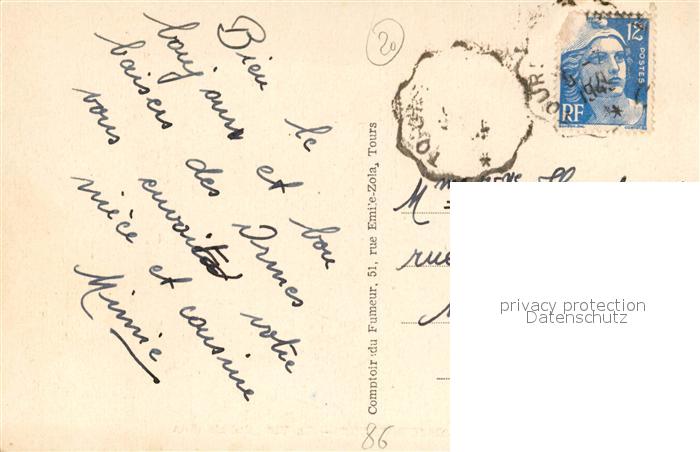 Bien le
bonjour et bon
baisers des Ormes
vous envoie votre
nièce et cousine
Minnie
20
86
Comptoir du Fumeur, 51, rue Emile-Zola, Tours
12F
POSTES
RF
TOUR
rue
privacy protection
Datenschutz